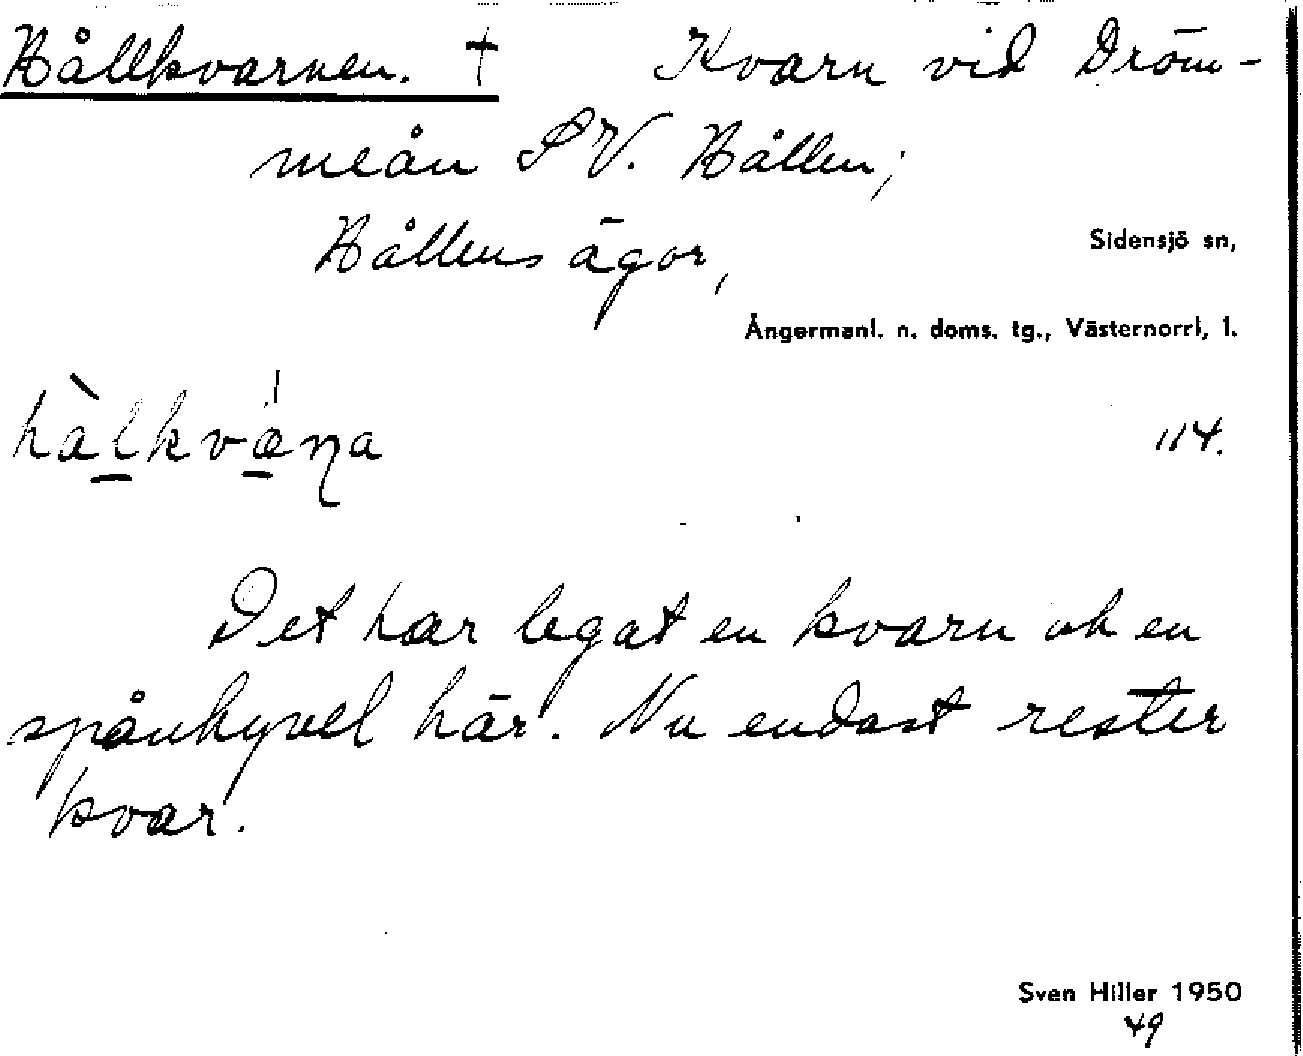 Hållkvarnen. † Kvarn vid Dröm-
meån SV. Hållen;
Hållens ägor,
Sidensjö sn,
Ångermanl. n. doms. tg., Västernorrl, l.
114.
Det har legat en kvarn och en
spånhyvel här. Nu endast rester
kvar.
Sven Hiller 1950
49